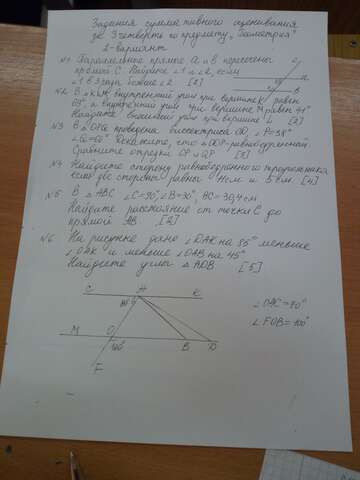 Задания суммативного оценивания
за 3 четверть по предмету „Геометрия"
2-вариант
№1 Параллельные прямые a и b пересечены
прямой C. Найдите ∠1 и ∠2, если
∠1 в 3 раза больше ∠2. [2]
№2 В △KLM, внутренний угол при вершине K равен
63°, а внутренний угол при вершине M равен 41°
Найдите внешний угол при вершине L [2]
№3 В △OPQ проведена биссектриса OD, ∠P=58°
∠Q=60° Докажите, что △ODP-равнобедренный
Сравните отрезки OP и QP [3]
№4 Найдите сторону равнобедренного треугольника
если две стороны равны 11см и 5см. [4]
№5 В △ABC ∠C=90°, ∠B=30°, BC=30,4см
Найдите расстояние от точки C до
прямой AB. [2]
№6 На рисунке дано ∠DAK на 85° меньше
∠OAK и меньше ∠OAB на 45°
Найдите углы △AOB [5]
C A K
80°
∠OAC=80°
∠FOB=100°
M O B D
100°
F